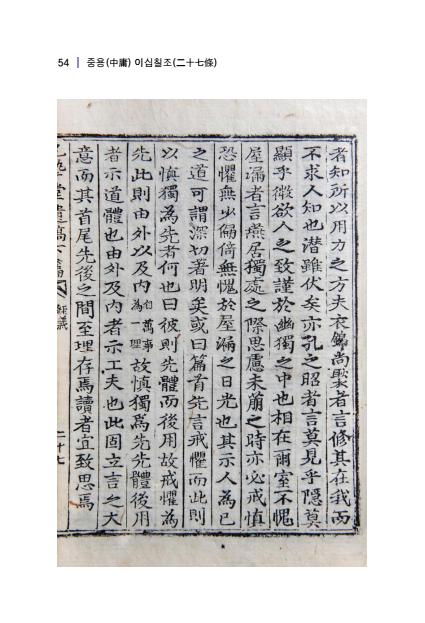 54 | 중용(中庸) 이십칠조(二十七條)
者知所以用力之方夫衣錦尚褧者言修其在我而
不求人知也潜雖伏矣亦孔之昭者言莫見乎隱莫
顯乎微欲人之致謹於幽獨之中也相在爾室不愧
屋漏者言燕居獨處之際思慮未萠之時亦必戒慎
恐懼無少偏倚無愧於屋漏之日光也其示人為己
之道可謂深切著明矣或曰篇首先言戒懼而此則
以慎獨為先者何也曰彼則先體而後用故戒懼為
先此則由外以及内自萬事為一理故慎獨爲先先體後用
者示道體也由外及内者示工夫也此固立言之大
意而其首尾先後之間至理存焉讀者宜致思焉
堂遺稿 經義 二十七